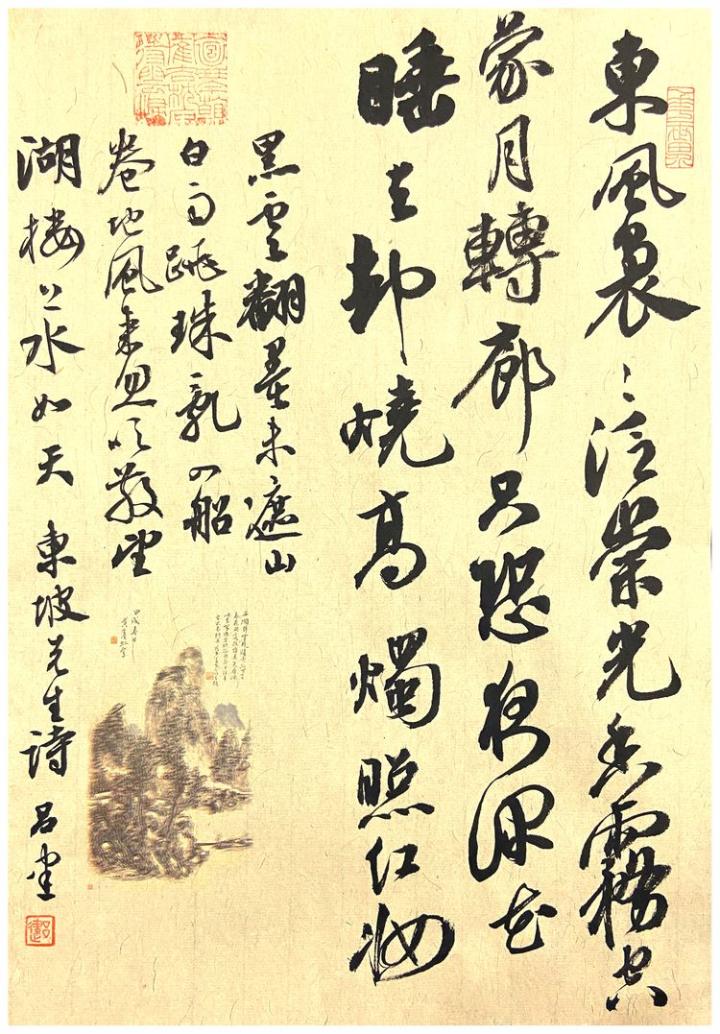 東風裊〻泛崇光香霧空
蒙月轉廊只恐夜深花
睡去却燒高燭照紅妝
黑雲翻墨未遮山
白雨跳珠亂入船
卷地風來忽吹散望
湖樓下水如天 東坡先生詩 呂